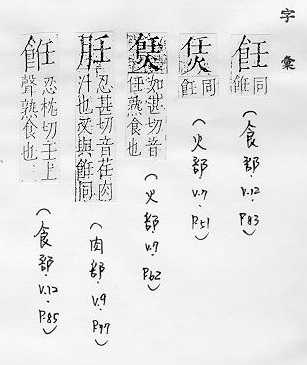 字彙
飪 同餁
（食部．V.12．P.83）
同飪
（火部．V.7．P.51）
如甚切音任熟食也
（火部．V.7．P.62）
忍甚切音荏肉汁也又與餁同
（肉部．V.9．P.97）
餁 忍枕切壬上聲熟食也
（食部．V.12．P.85）